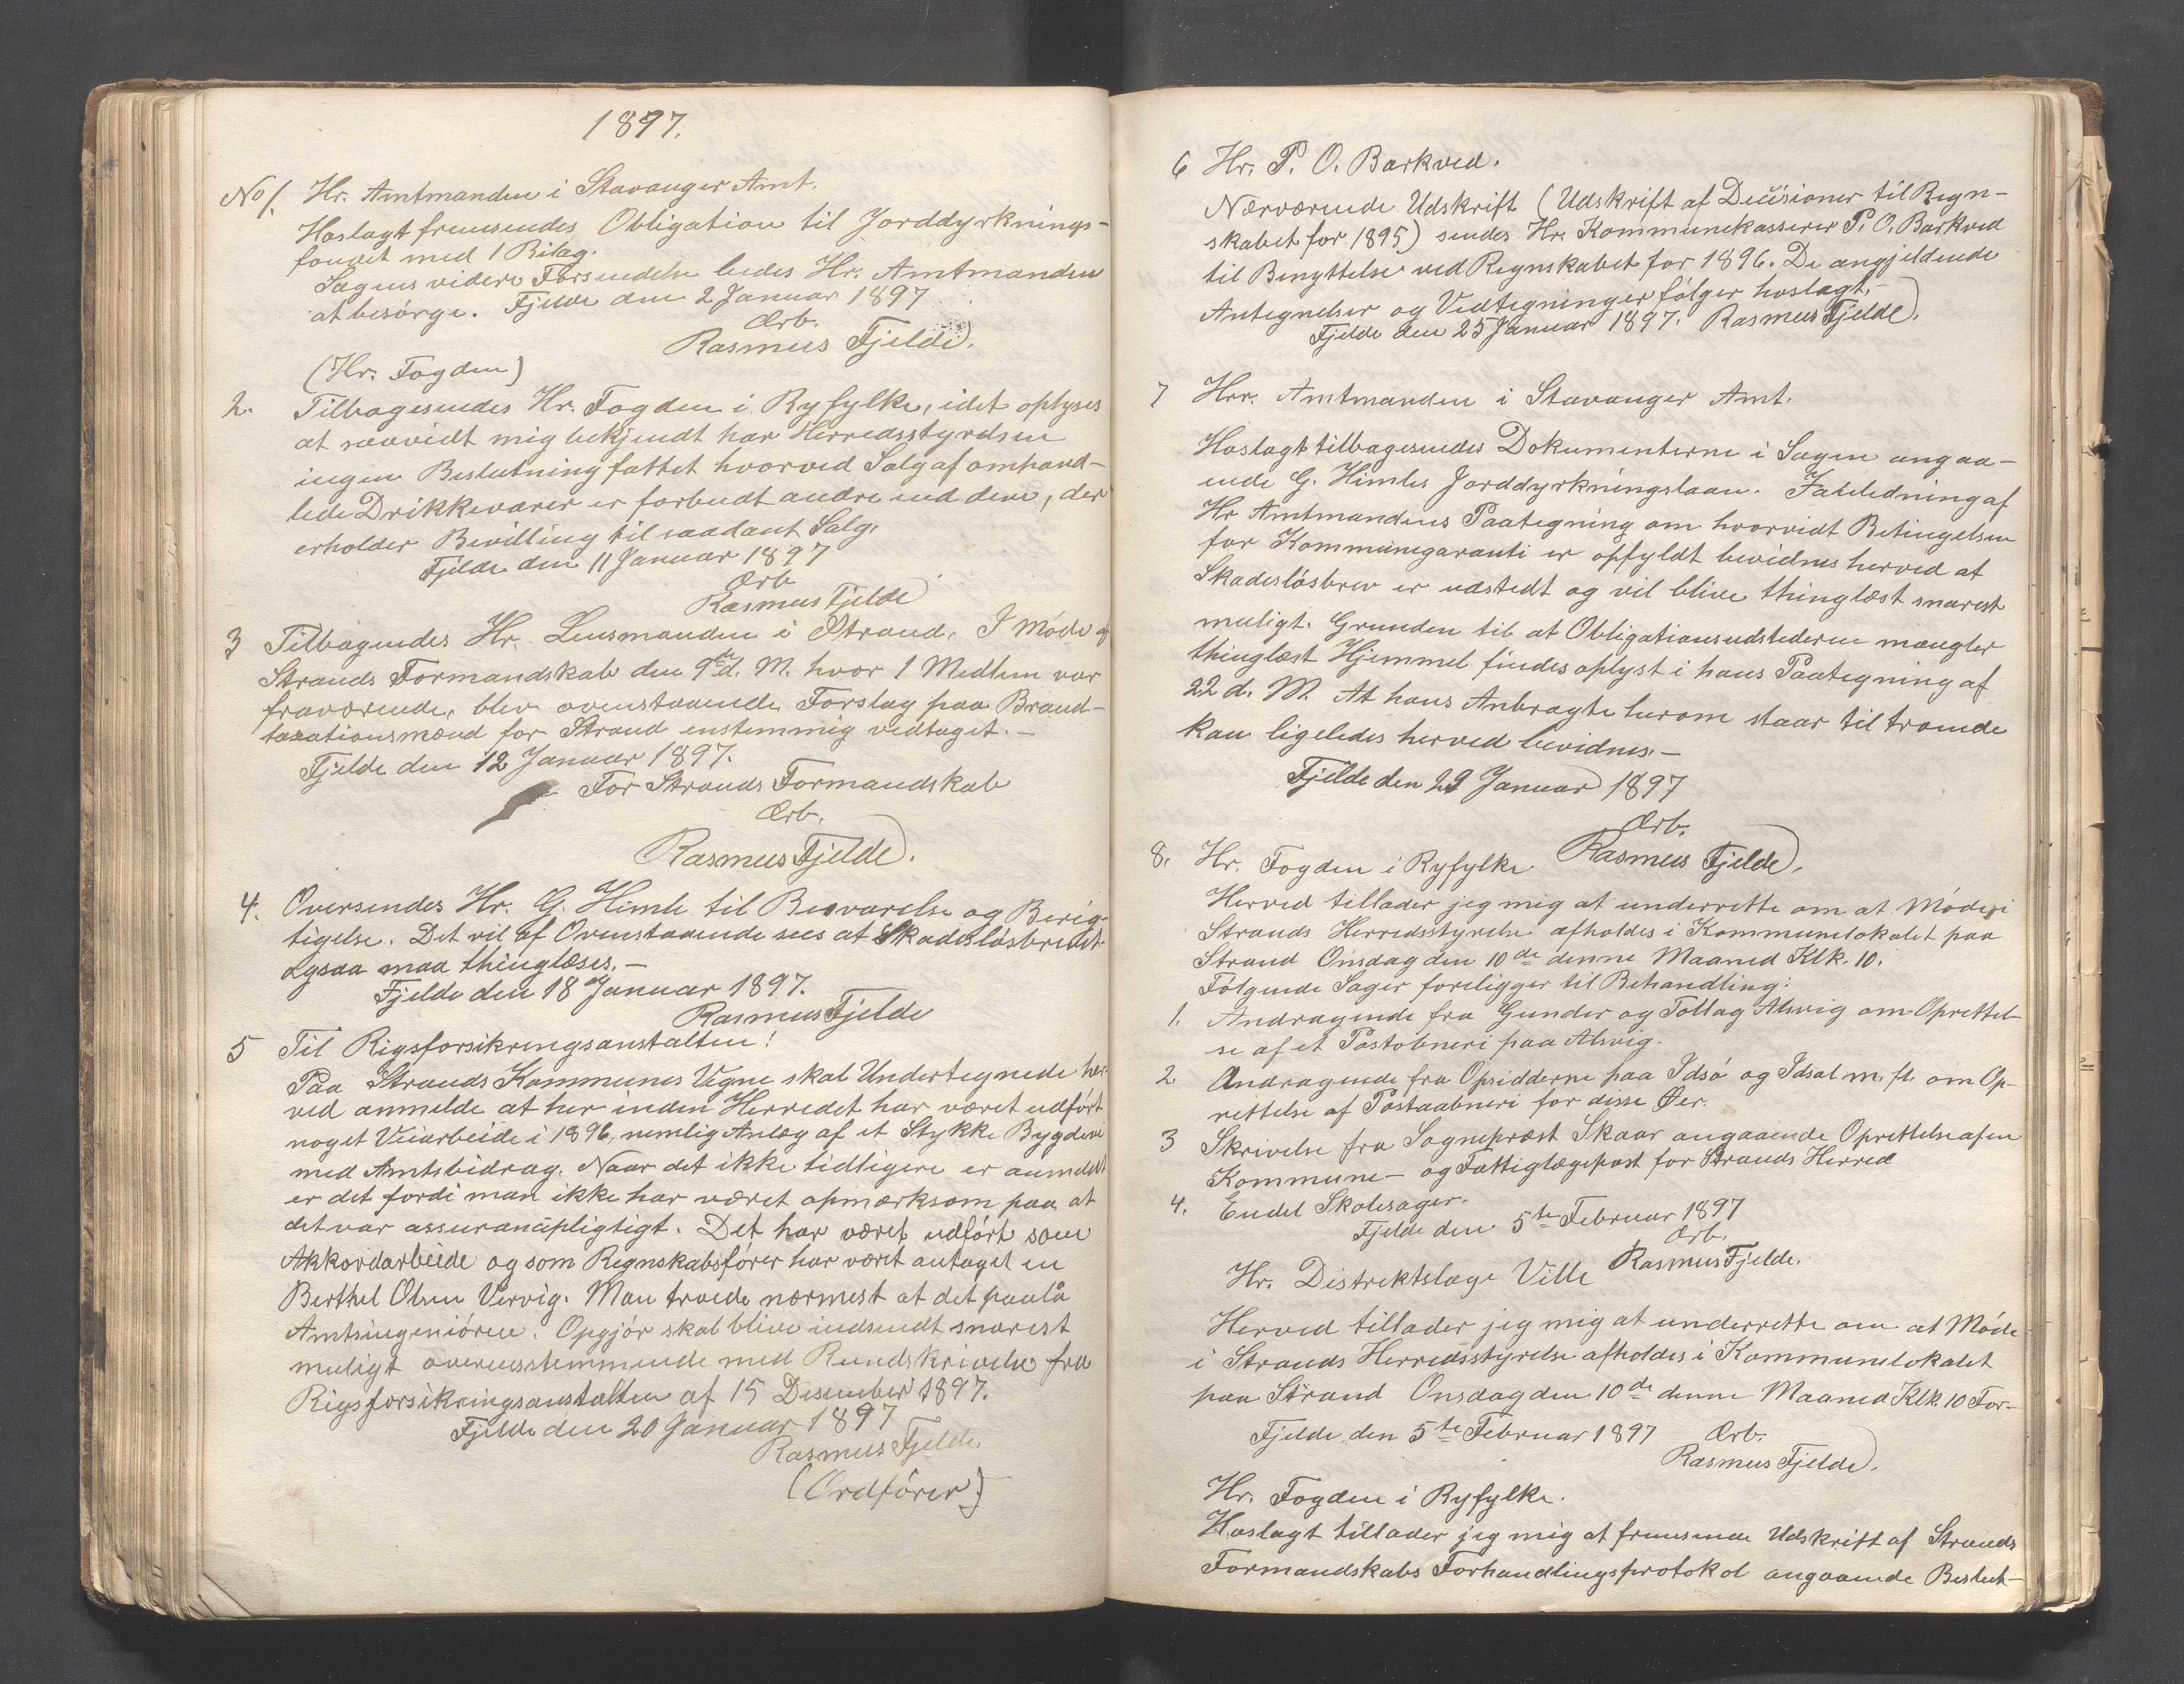 1897.
No 1. Hr. Amtmanden i Stavanger Amt.
Hoslagt fremsendes Obligation til Jorddyrknings-
fondet med 1 Bilag.
Sagens videre Forsendelse bedes Hr. Amtmanden
at besörge. Fjelde den 2 Januar 1897
Orb.
Rasmus Fjelde.
(Hr. Fogden)
2. Tilbagesendes Hr. Fogden i Ryfylke, idet oplyses
at saavidt mig bekjendt har Herredsstyrelsen
ingen Beslutning fattet hvorved Salg af omhand-
lede Drikkevarer er forbudt andre end dem, der
erholder Bevilling til saadant Salg.
Fjelde den 11 Januar 1897
Orb
Rasmus Fjelde
3 Tilbagendes Hr. Lensmanden i Strand. I Möde af
Strands Formandskab den 9de d. M. hvor 1 Medlem var
fraværende, blev ovenstaaende Forslag paa Brand-
taxationsmænd for Strand enstemmig vedtaget.-
Fjelde den 12 Januar 1897.
For Strands Formandskab
Orb.
Rasmus Fjelde.
4. Oversendes Hr. G. Himle til Besvarelse og Berig-
tigelse. Det vil af Ovenstaaende sees at Skadeslösbrevet
ogsaa maa thinglæses.-
Fjelde den 18 Januar 1897.
Rasmus Fjelde
5 Til Rigsforsikringsanstalten!
Paa Strands Kommunes Vegne skal Undertegnede her-
ved anmelde at her inden Herredet har været udfört
noget Veiarbeide i 1896, nemlig Anlæg af et Stykke Bygdevei
med Amtsbidrag. Naar det ikke tidligere er anmeldt
er det fordi man ikke har været opmærksom paa at
det var assurancepligtigt. Det har været udfört som
Akkordarbeide og som Regnskabsförer har været antaget en
Berthel Olsen Vervig. Man troede nærmest at det paalå
Amtsingeniören. Opgjör skal blive indsendt snarest
muligt overensstemmende med Rundskrivelse fra
Rigsforsikringsanstalten af 15 Desember 1897.
Fjelde den 20 Januar 1897
Rasmus Fjelde
(Ordförer)
6 Hr. P. O. Barkved.
Nærværende Udskrift (Udskrift af Decisioner til Regn-
skabet for 1895) sendes Hr. Kommunekasserer P. O. Barkved
til Benyttelse ved Regnskabet for 1896. De angjeldende
Antegnelser og Vedtegninger fölger hoslagt.-
Fjelde den 25 Januar 1897. Rasmus Fjelde.
7 Hrr. Amtmanden i Stavanger Amt.
Hoslagt tilbagesendes Dokumenterne i Sagen angaa-
ende G. Himles Jorddyrkningslaan. I Anledning af
Hr Amtmandens Paategning om hvorvidt Betingelsen
for Kommunegaranti er opfyldt bevidnes herved at
Skadeslösbrev er udstedt og vil blive thinglæst snarest
muligt. Grunden til at Obligationsudstederen mangler
thinglæst Hjemmel findes oplyst i hans Paategning af
22 d. M. At hans Anbragte herom staar til troende
kan ligeledes herved bevidnes.-
Fjelde den 29 Januar 1897
Orb.
Rasmus Fjelde.
8. Hr. Fogden i Ryfylke
Herved tillader jeg mig at underrette om at Möde i
Strands Herredsstyrelse afholdes i Kommunelokalet paa
Strand Onsdag den 10de denne Maaned Klk. 10.
Fölgende Sager foreligger til Behandling:
1. Andragende fra Gunder og Tollag Alsvig om Oprettel-
se af et Postobneri paa Alsvig.
2. Andragende fra Opsidderne paa Idsö og Idsal m. fl. om Op-
rettelse af Postaabneri for disse Öer.
3 Skrivelse fra Sognepræst Skaar angaaende Oprettelse af en
Kommune- og Fattiglægepost for Strands Herred
4. Endel Skolesager.
Fjelde den 5te Februar 1897
Orb.
Rasmus Fjelde.
Hr. Distriktslæge Ville
Herved tillader jeg mig at underrette om at Möde
i Strands Herredsstyrelse afholdes i Kommunelokalet
paa Strand Onsdag den 10de denne Maaned Klk. 10 For-
Fjelde den 5te Februar 1897 Orb.
Rasmus Fjelde.
Hr. Fogden i Ryfylke.
Hoslagt tillader jeg mig at fremsende Udskrift af Strands
Formandskabs Forhandlingsprotokol angaaende Beslut-